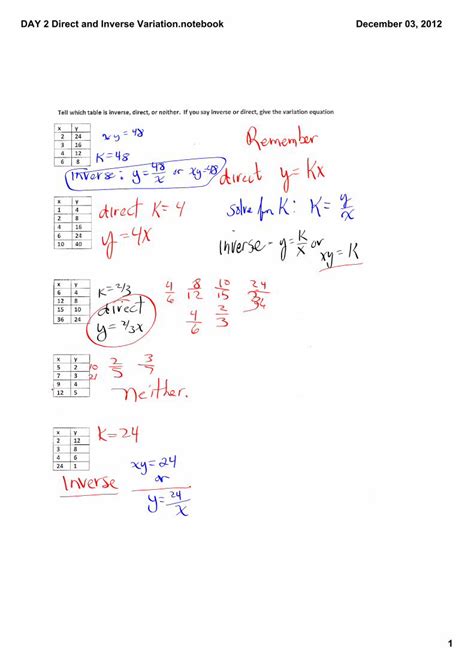 DAY 2 Direct and Inverse Variation.notebook
December 03, 2012
Tell which table is inverse, direct, or neither. If you say inverse or direct, give the variation equation
x y
2 24
3 16
4 12
6 8
xy = 48
K=48
Inverse: y = 48/x or xy=48
Remember
direct y = Kx
Solve for K: K = y/x
inverse - y = K/x or
xy = K
x y
1 4
2 8
4 16
6 24
10 40
direct K = 4
y = 4x
x y
6 4
12 8
15 10
36 24
K = 2/3
direct
y = 2/3x
4/6 8/12 10/15 24/36
4/6 2/3
x y
5 2
7 3
9 4
12 5
10
21
2/5 3/7
neither.
x y
2 12
3 8
4 6
24 1
K=24
xy = 24
or
y = 24/x
Inverse
1